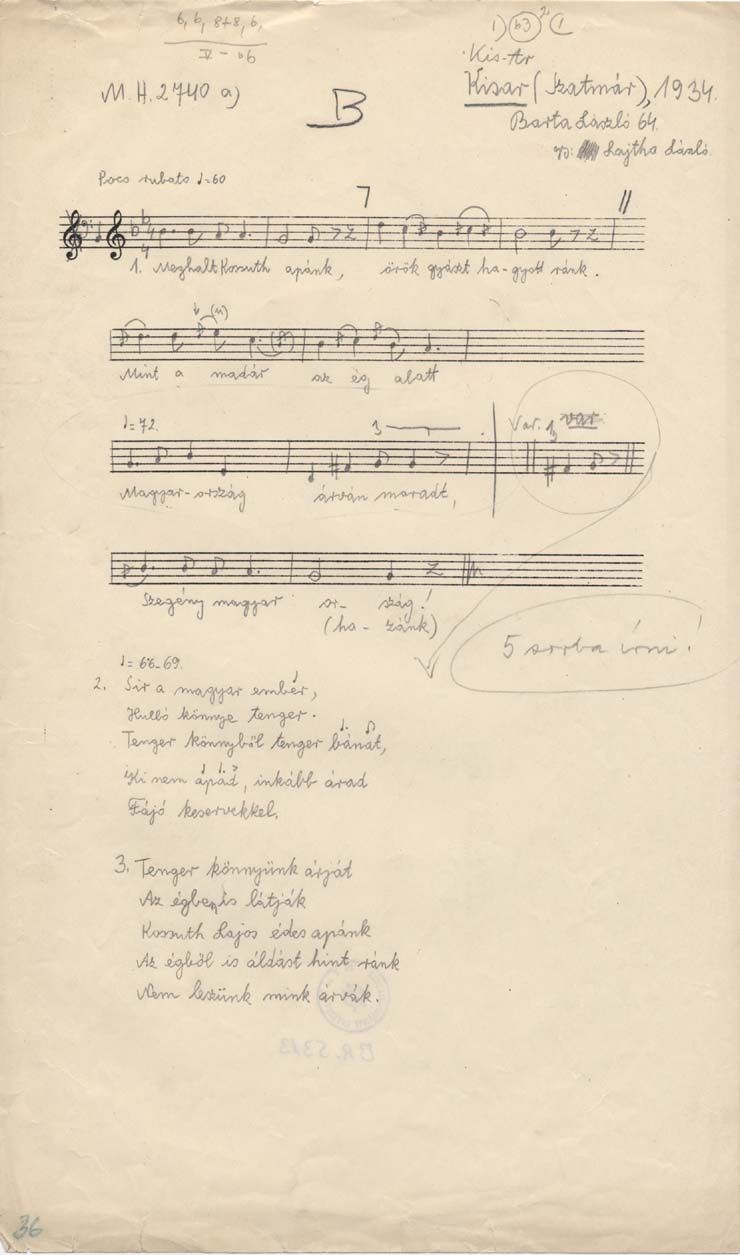 6, 6, 8+8, 6,
V – 9a
1) b3 2 (1
Kis-Ar
M.H. 2740 a)
Kisar (Szatmár), 1934.
B
Barta László 64.
gy: Lajtha László.
Poco rubato ♩=60
7
1. Meghalt Kossuth apánk, örök gyászt ha-gyott ránk.
Mint a madár az ég alatt
♩=72.
3
Var. 3 var
Magyar-ország árván maradt,
Szegény magyar or- szág!
(ha- zánk)
5 sorba írni!
♩=66-69.
2. Sír a magyar ember,
Hulló könnye tenger.
Tenger könnyből tenger bánat,
Ki nem apad, inkább árad
Fájó keservekkel.
3. Tenger könnyünk árját
Az égben is látják
Kossuth Lajos édes apánk
Az égből is áldást hint ránk
Nem leszünk mink árvák.
BR. 5313
36